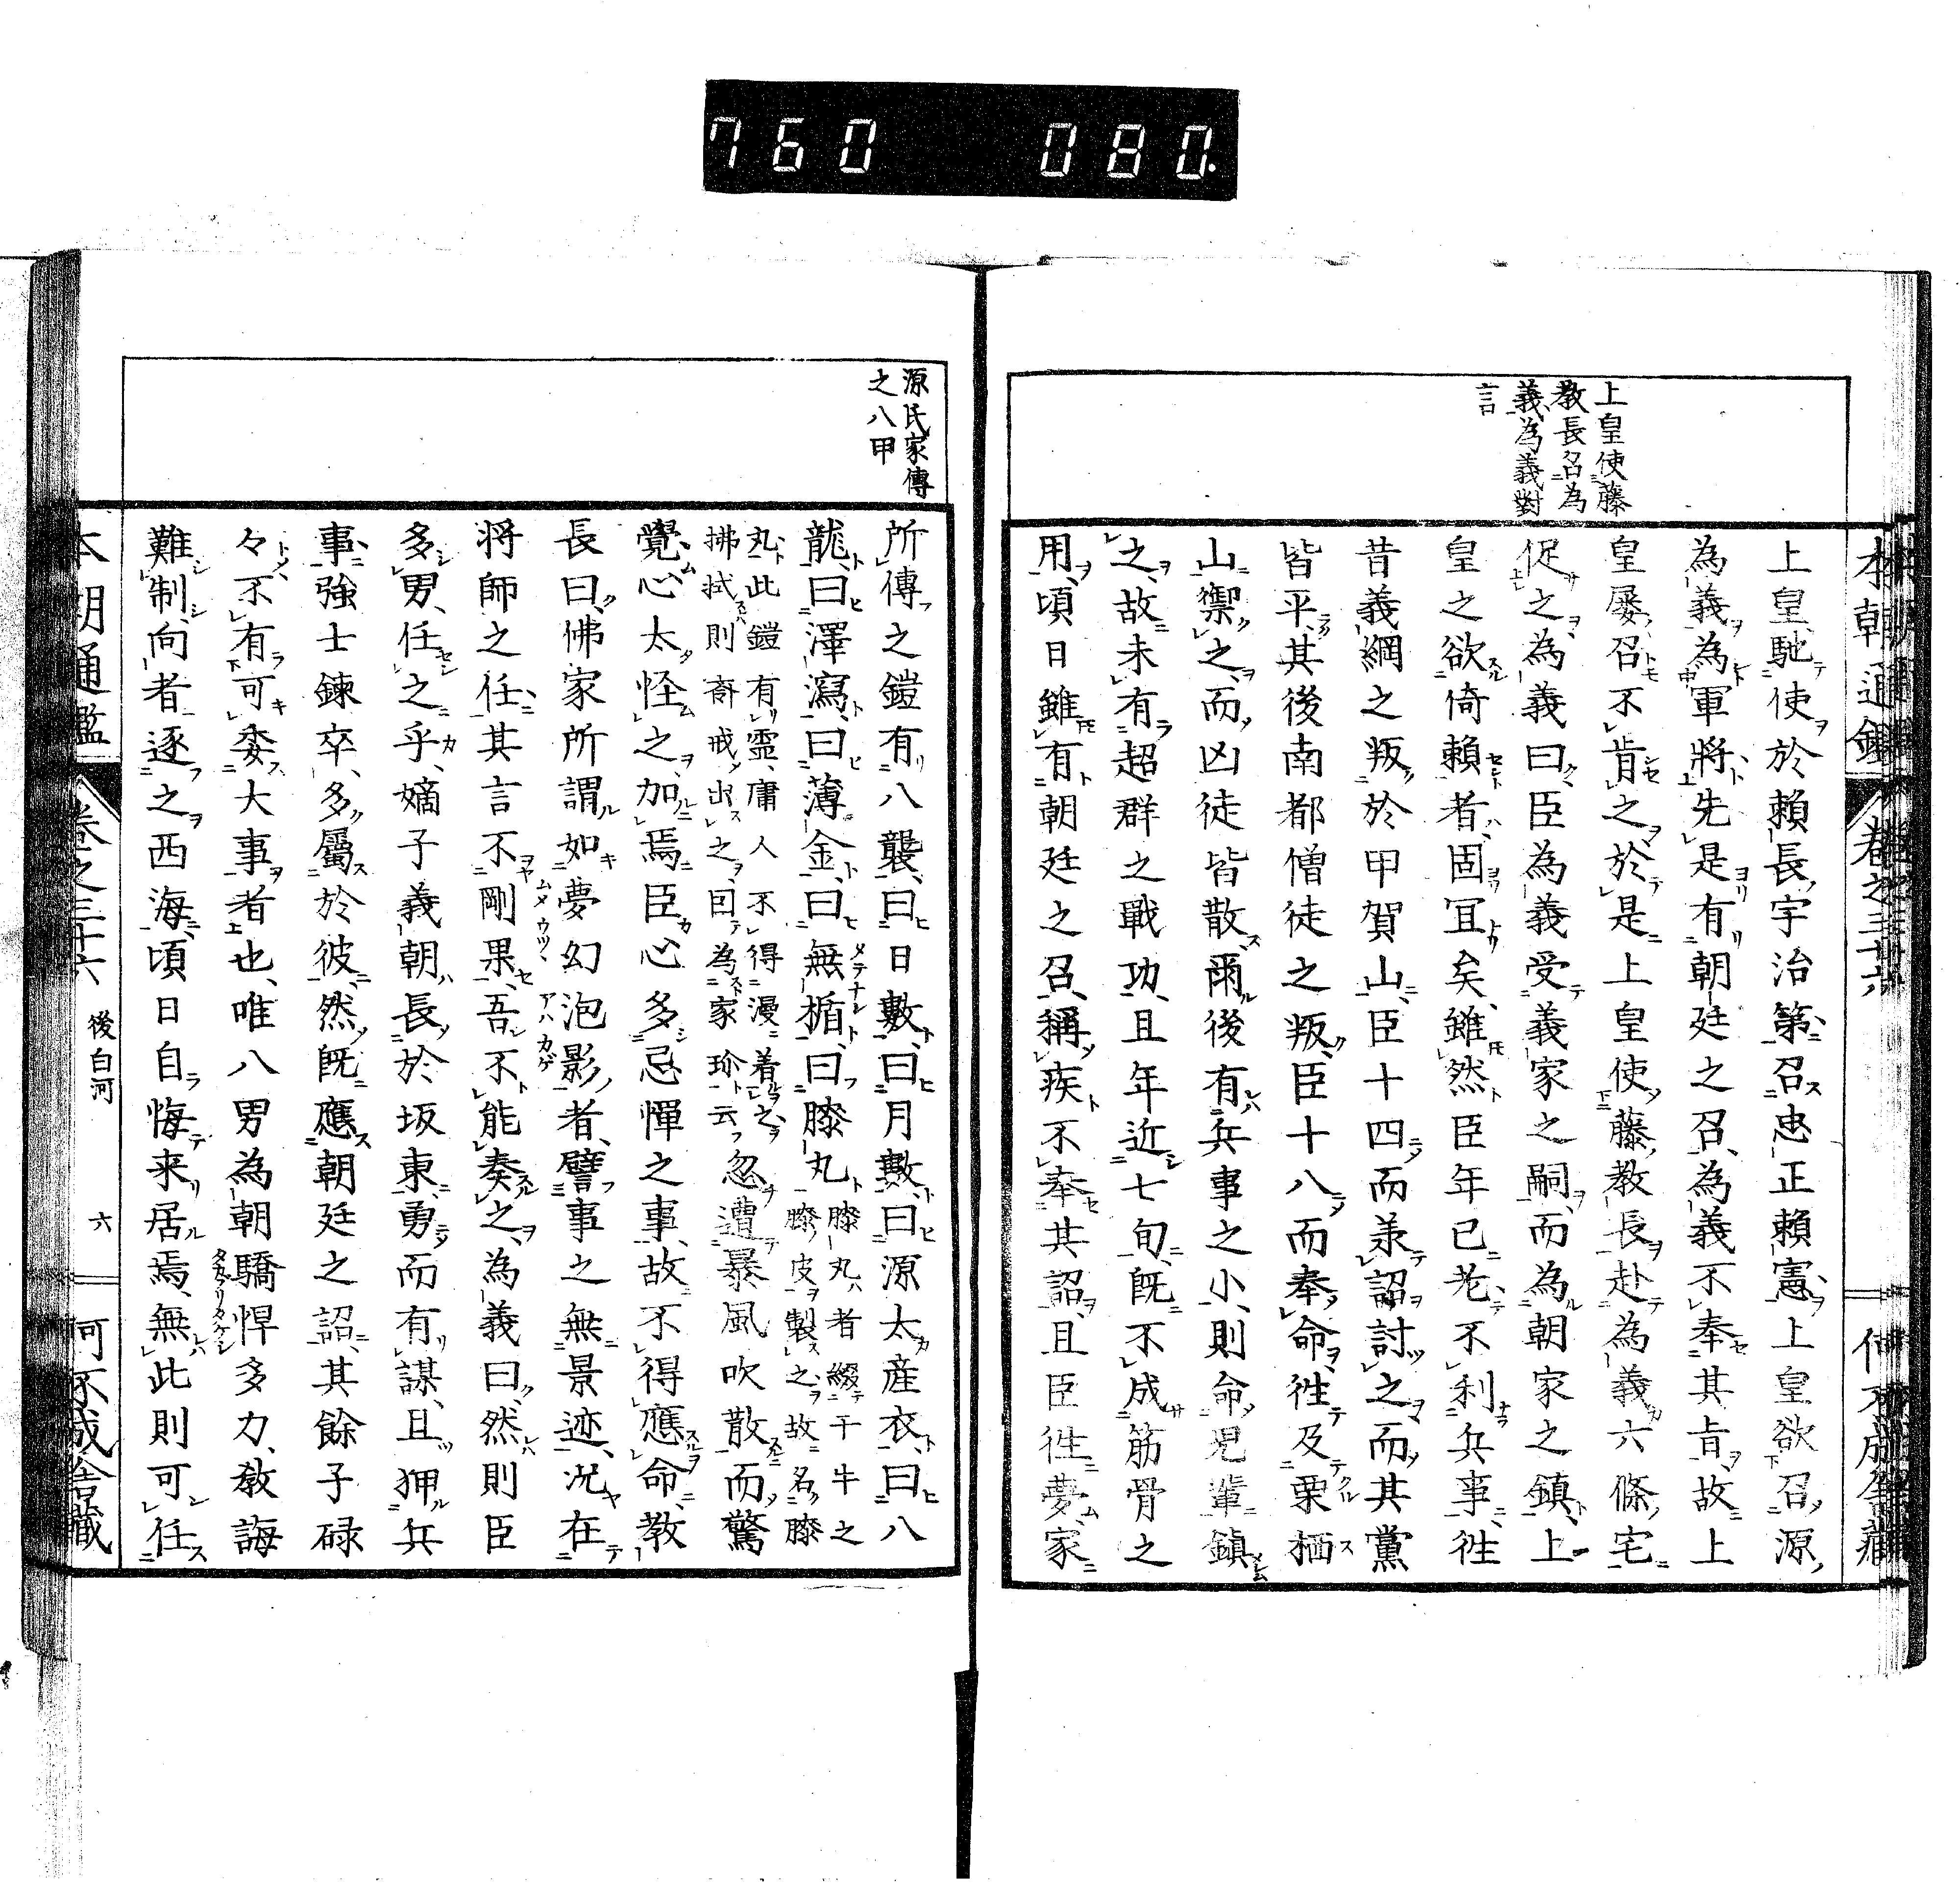 760 080.
本朝通鑑 卷之三十六 何不成舎藏
上皇使藤
教長召為
義為義對
言
上皇馳使於賴長宇治第召忠正賴憲上皇欲召源
為義為軍將先是有朝廷之召為義不奉其旨故上
皇屡召不肯之於是上皇使藤教長赴為義六條宅
促之為義曰臣為義受義家之嗣而為朝家之鎮上
皇之欲倚賴者固冝矣雖然臣年已老不利兵事徃
昔義綱之叛於甲賀山臣十四而羕詔討之而其黨
皆平其後南都僧徒之叛臣十八而奉命徃及栗栖
山禦之而凶徒皆散爾後有兵事之小則命児輩鎮
之故未有超群之戰功且年近七旬既不成筋骨之
用頃日雖有朝廷之召稱疾不奉其詔且臣徃夢家
源氏家傳
之八甲
所傳之鎧有八襲曰日數曰月數曰源太産衣曰八
龍曰澤瀉曰薄金曰無楯曰膝丸膝丸者綴千牛之
膝皮製之故名膝
丸此鎧有霊庸人不得漫着之
拂拭則斎戒出之因為家珎云忽遭暴風吹散而驚
覺心太怪之加焉臣心多忌憚之事故不得應命教
長曰佛家所謂如夢幻泡影者譬事之無景迹况在
将師之任其言不剛果吾不能奏之為義曰然則臣
多男任之乎嫡子義朝長於坂東勇而有謀且狎兵
事強士錬卒多屬於彼然既應朝廷之詔其餘子碌
々不有可委大事者也唯八男為朝驕悍多力教誨
難制向者逐之西海頃日自悔来居焉無此則可任
本朝通鑑 卷之三十六 後白河 六 何不成舎藏